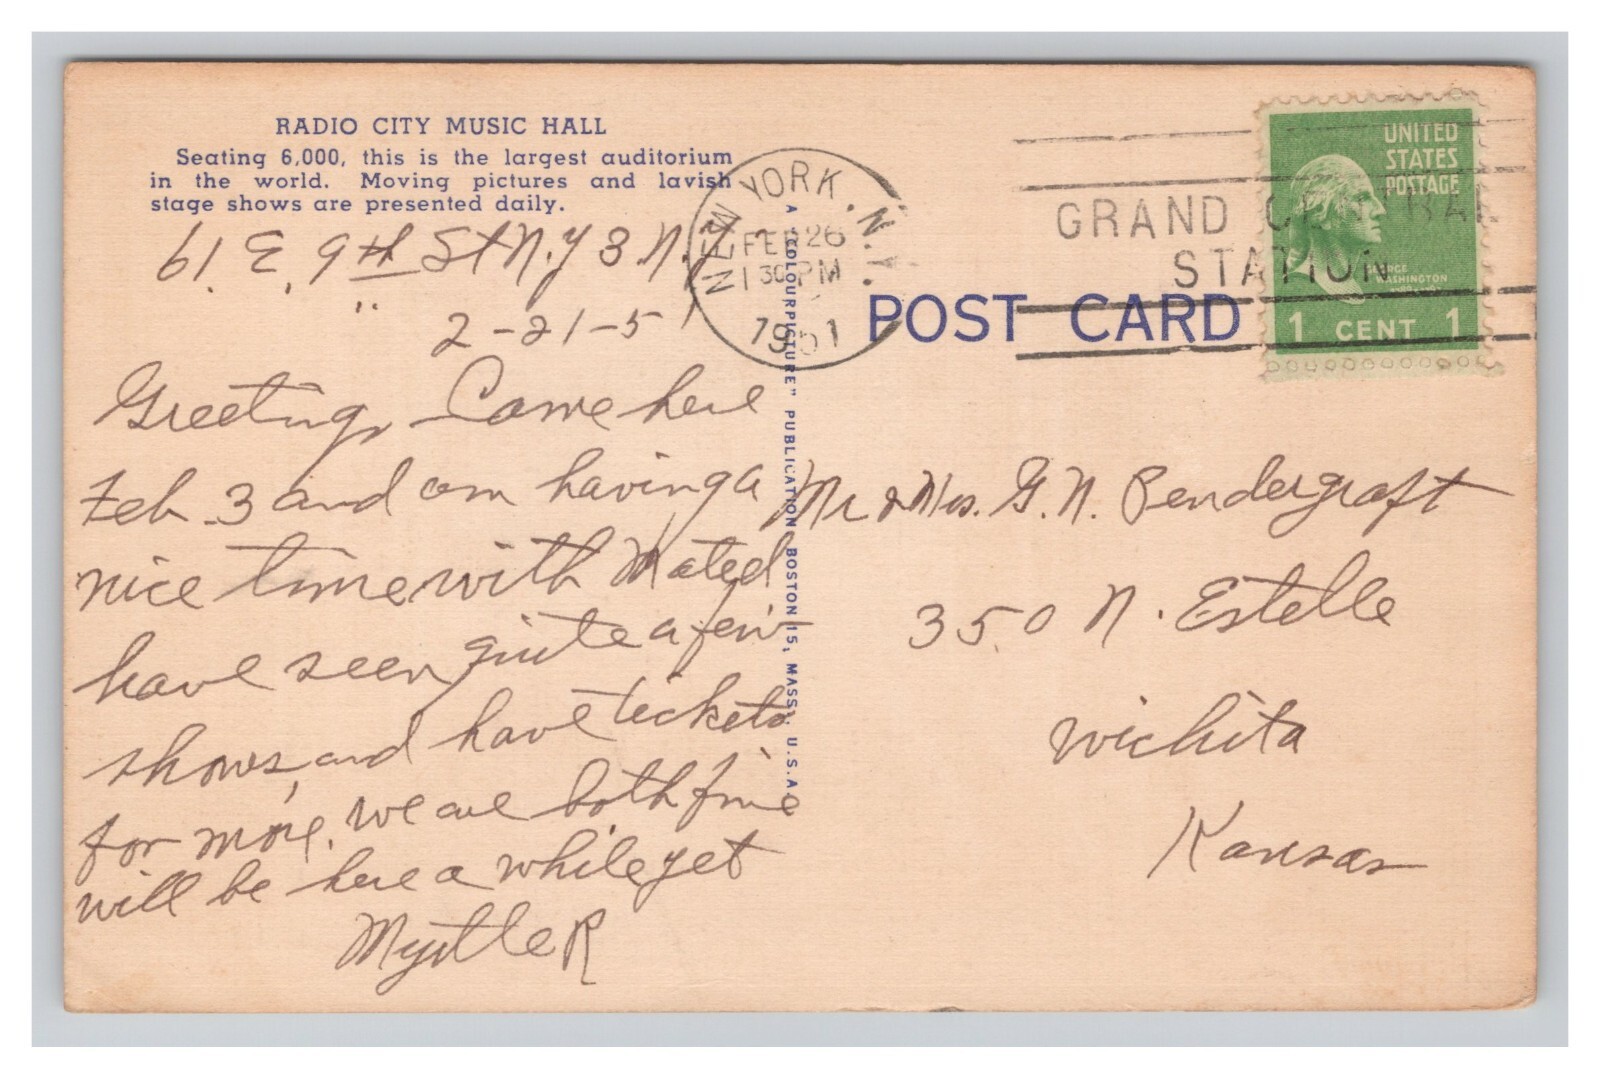 RADIO CITY MUSIC HALL
Seating 6,000, this is the largest auditorium
in the world. Moving pictures and lavish
stage shows are presented daily.
61 E, 9th St N.Y 3. N.Y
2-21-51
Greetings Came here
Feb 3 and am having a
nice time with
have seen quite a few
shows, and have tickets
for more, we are both fine
will be here a while yet
Myrtle R
A "COLOURPICTURE" PUBLICATION BOSTON 15, MASS., U.S.A.
NEW YORK, N.Y.
FEB 26
1 30 PM
1951
GRAND CENTRAL
STATION
UNITED
STATES
POSTAGE
GEORGE
WASHINGTON
1 CENT 1
POST CARD
Mr & Mrs. G. N. Pendergraft
350 N. Estelle
Wichita
Kansas